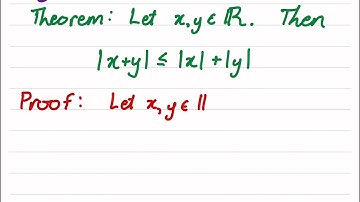 Theorem: Let x, y ∈ ℝ. Then
|x+y| ≤ |x| + |y|
Proof: Let x, y ∈ ll